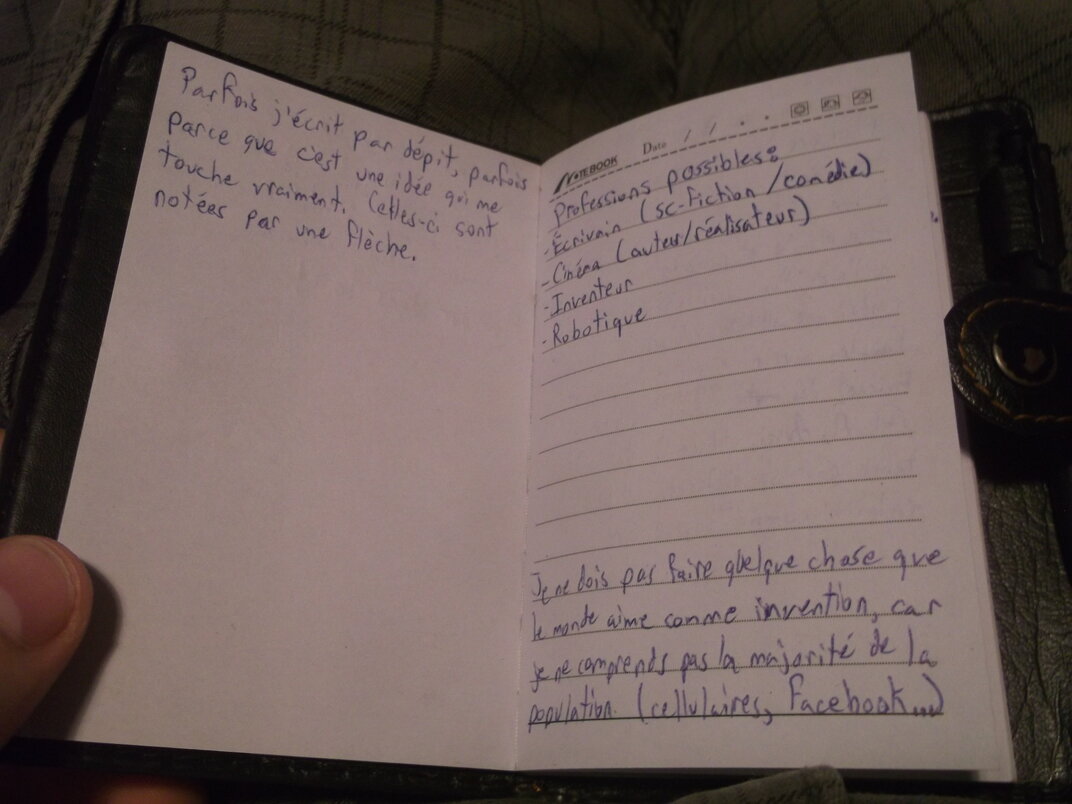 Parfois j'écrit par dépit, parfois
parce que c'est une idée qui me
touche vraiment. Celles-ci sont
notées par une flèche.
NOTEBOOK Date / / . .
Professions possibles:
-Écrivain (sc-fiction/comédie)
-Cinéma (auteur/réalisateur)
-Inventeur
-Robotique
Je ne dois pas faire quelque chose que
le monde aime comme invention, car
je ne comprends pas la majorité de la
population. (cellulaires, Facebook...)